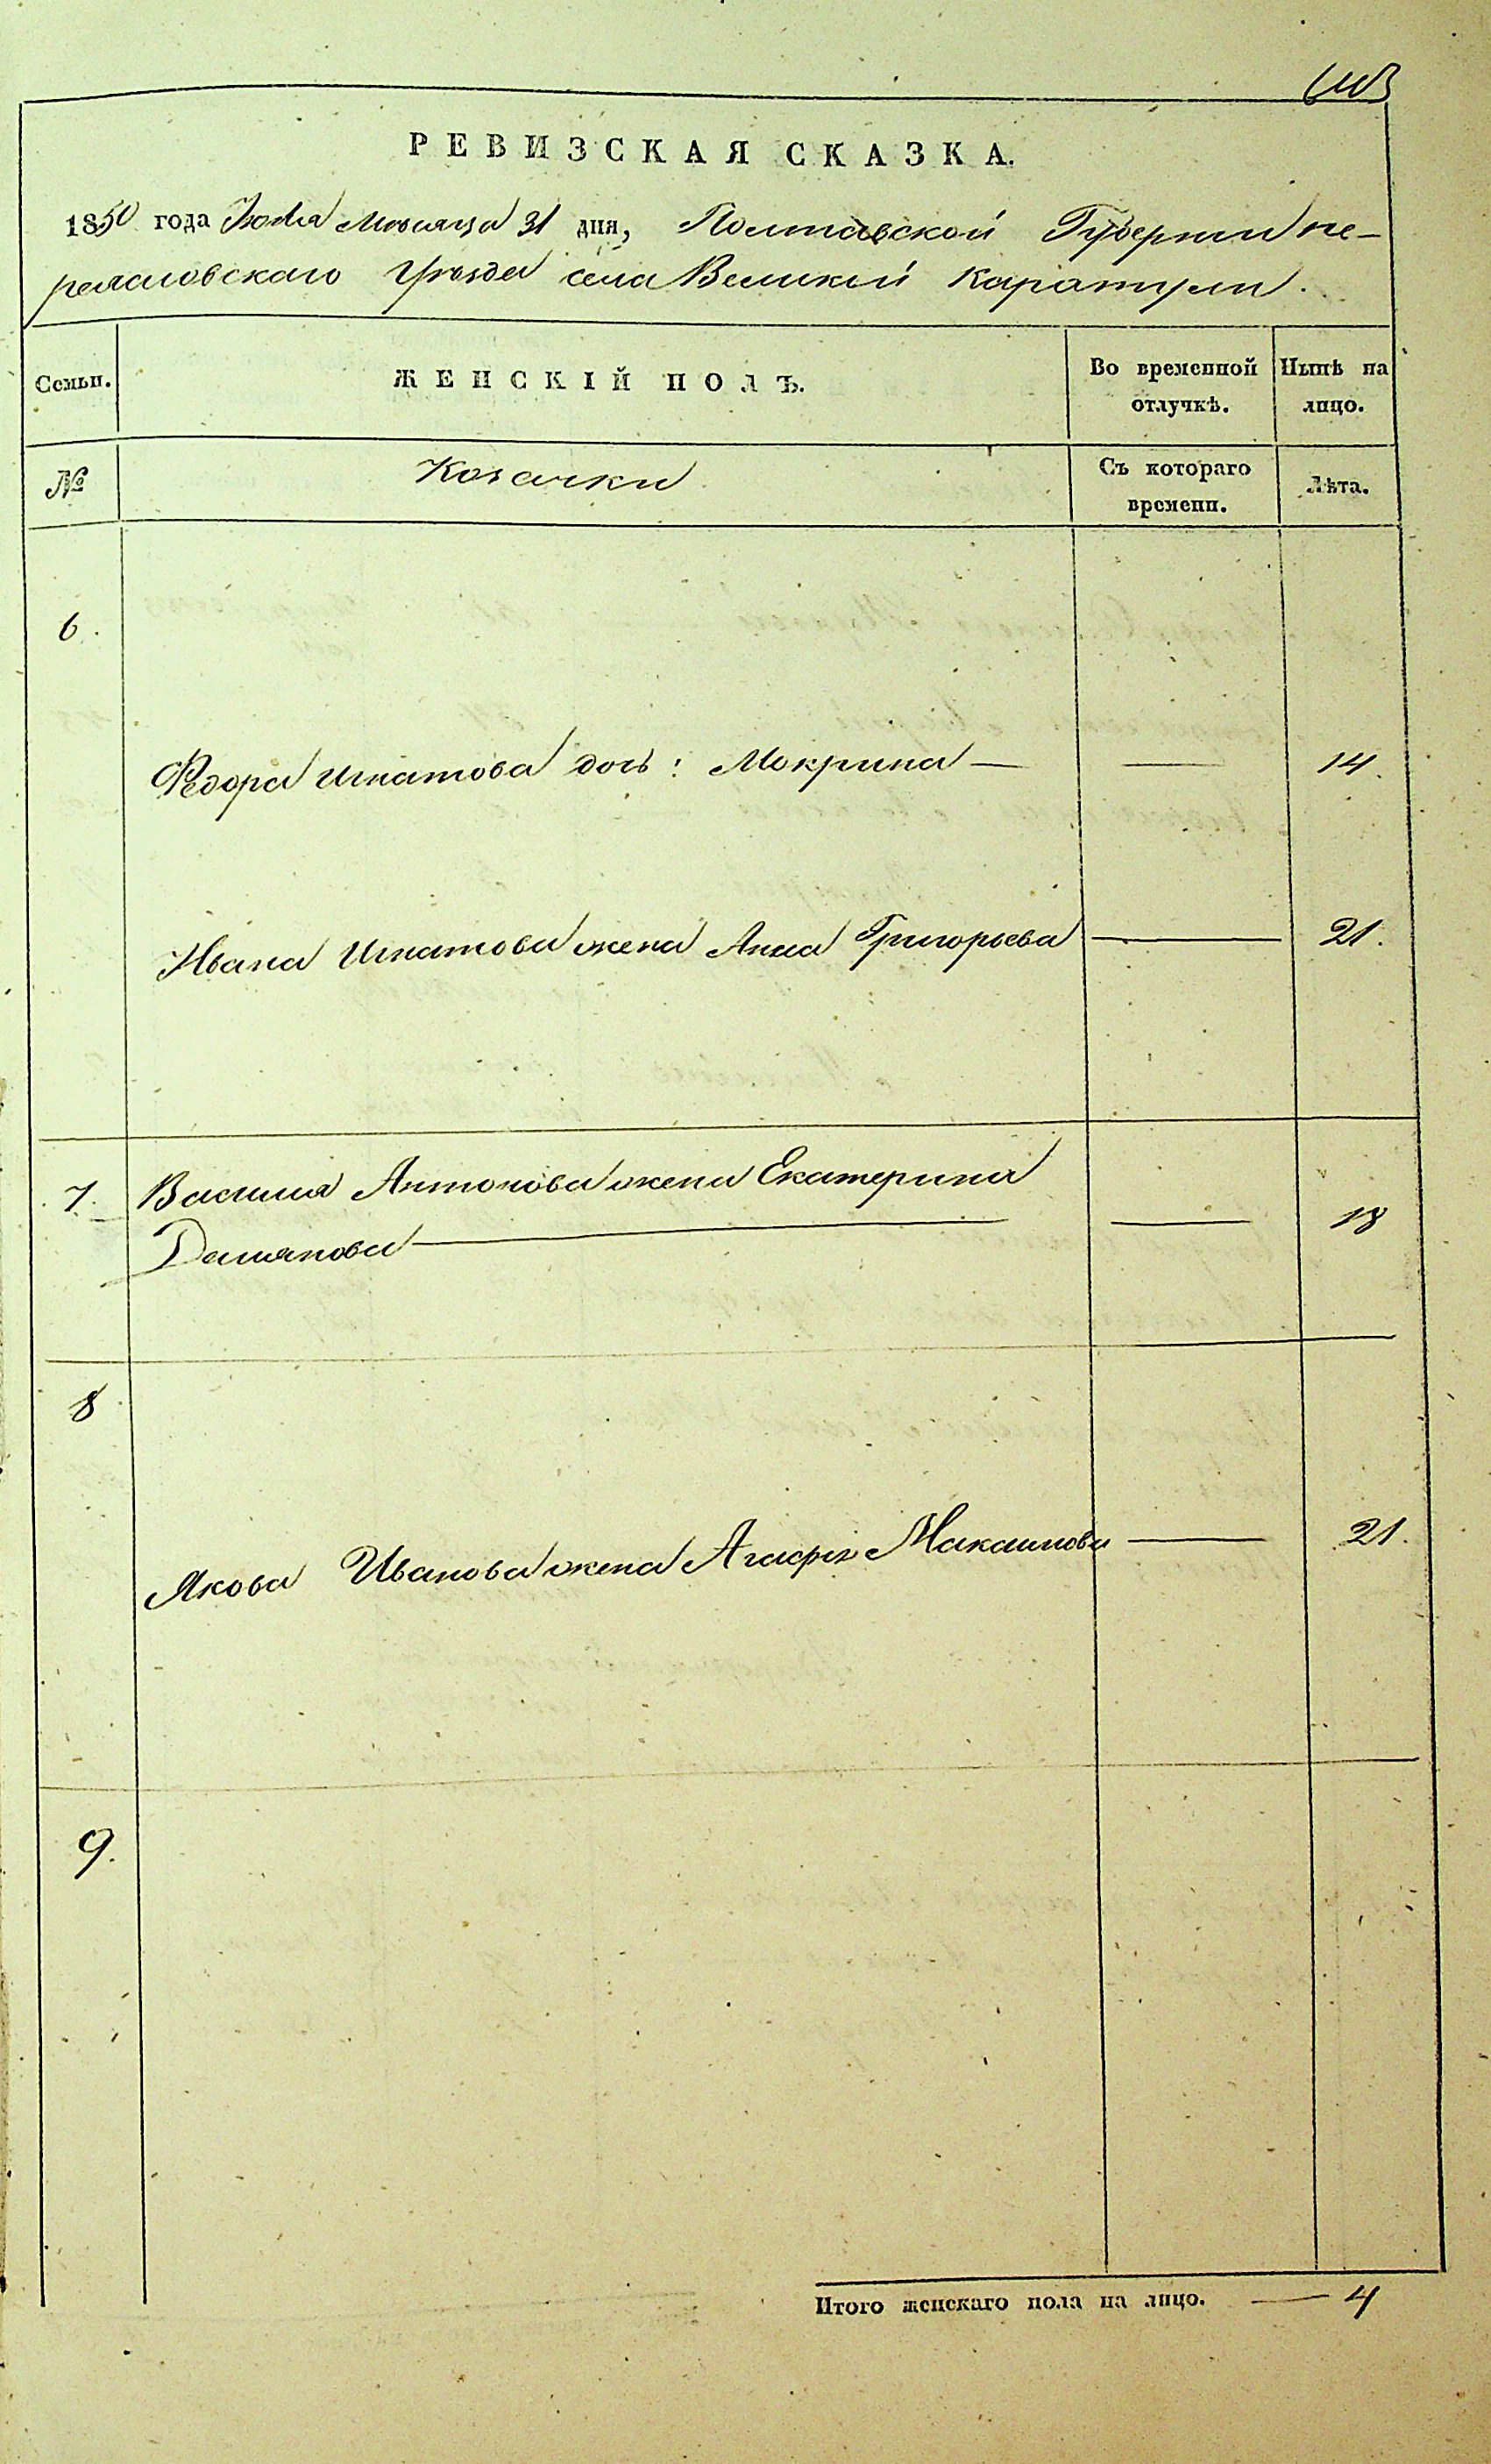 РЕВИЗСКАЯ СКАЗКА.
1850 года Іюля Мѣсяца 31 дня, Полтавской Губерніи пе-
реяславскаго Уѣзда села Великой Каратули.
Семьи. ЖЕНСКІЙ ПОЛЪ. Во временной отлучкѣ. Нынѣ на лицо.
№ Козачки Съ котораго времени. Лѣта.
6.
Федора Игнатова дочь: Мокрина — — 14.
Ивана Игнатова жена Анна Григорьева — 21.
7. Василия Антонова жена Екатерина
Демянова — — 18
8
Якова Иванова жена Агафія Макаимова — 21.
9.
Итого женскаго пола на лицо. — 4